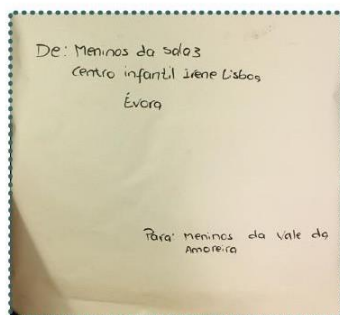 De: Meninos da Sala3
Centro infantil Irene Lisboa,
Évora
Para: meninos da Vale da
Amoreira